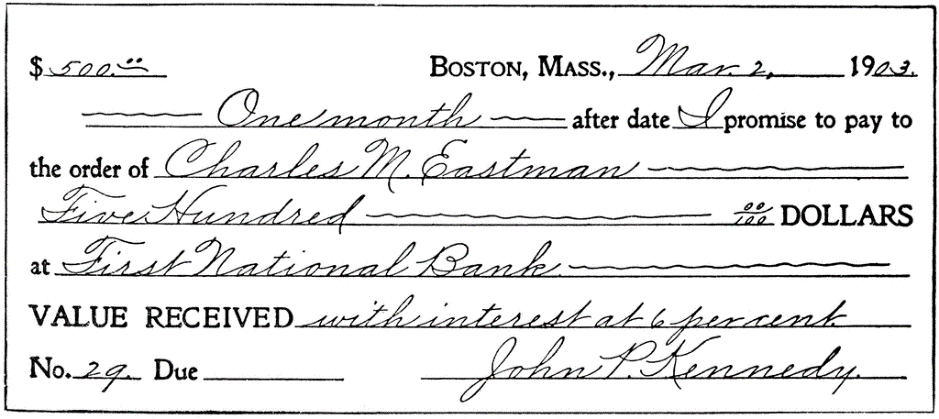 $ 500.00 BOSTON, MASS., Mar. 2, 1903.
One month after date I promise to pay to
the order of Charles M. Eastman
Five Hundred 00/100 DOLLARS
at First National Bank
VALUE RECEIVED with interest at 6 per cent.
No. 29. Due John P. Kennedy.